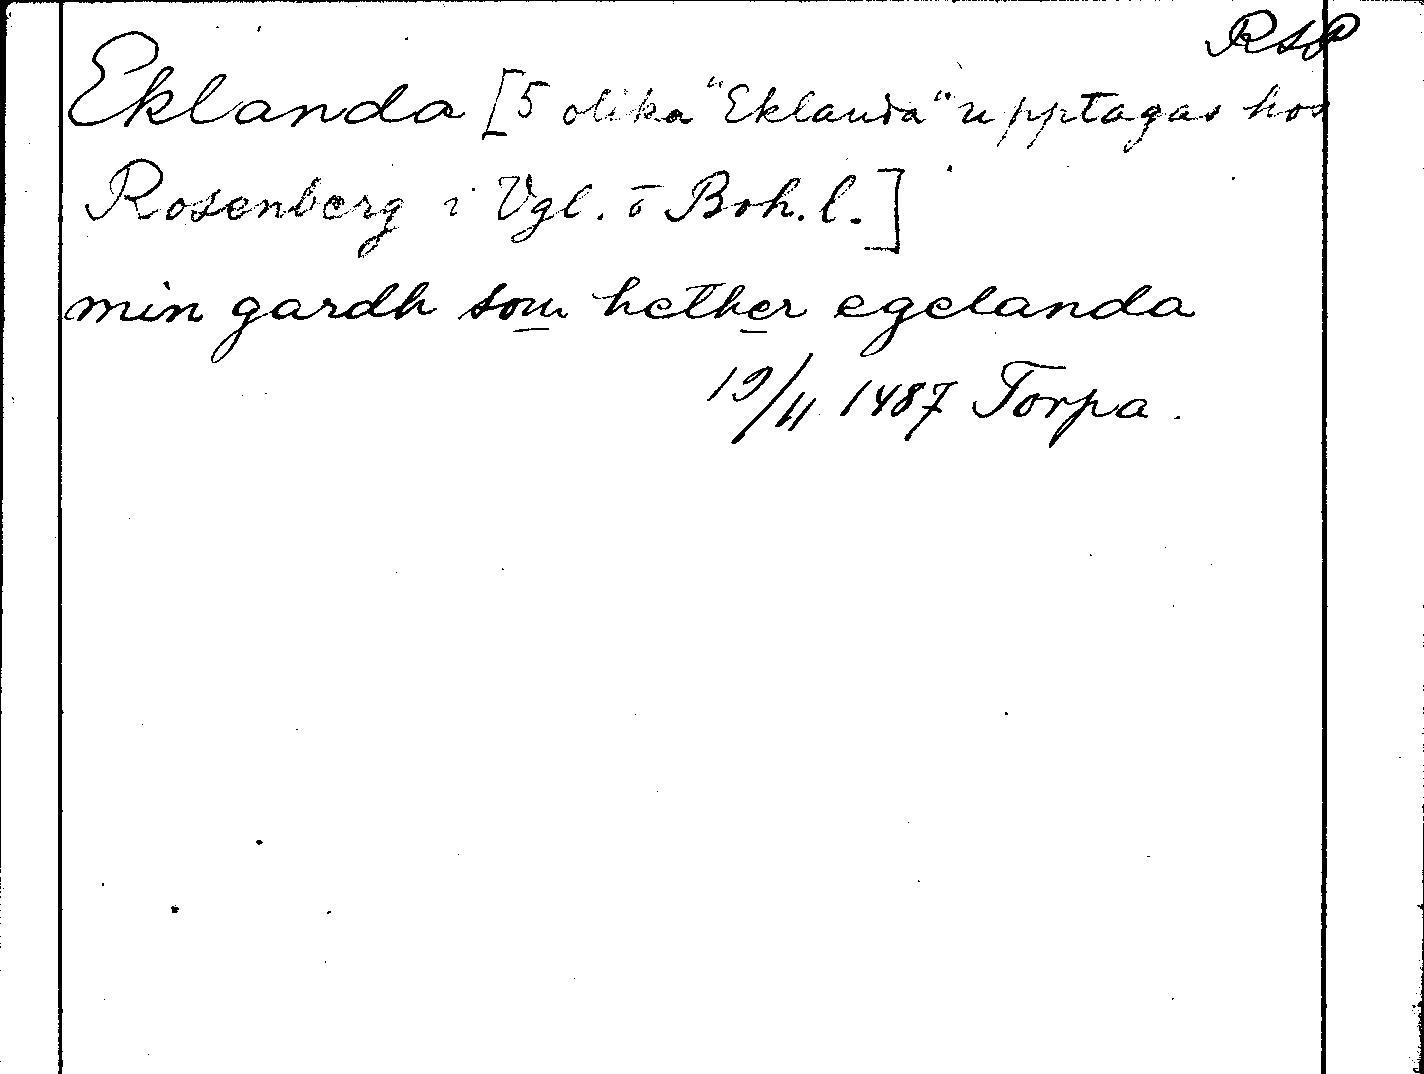 RAP
Eklanda [5 olika "Eklanda" upptagas hos
Rosenberg i Vgl. o Boh. l.]
min gardh som hether egelanda
19/11 1487 Torpa.